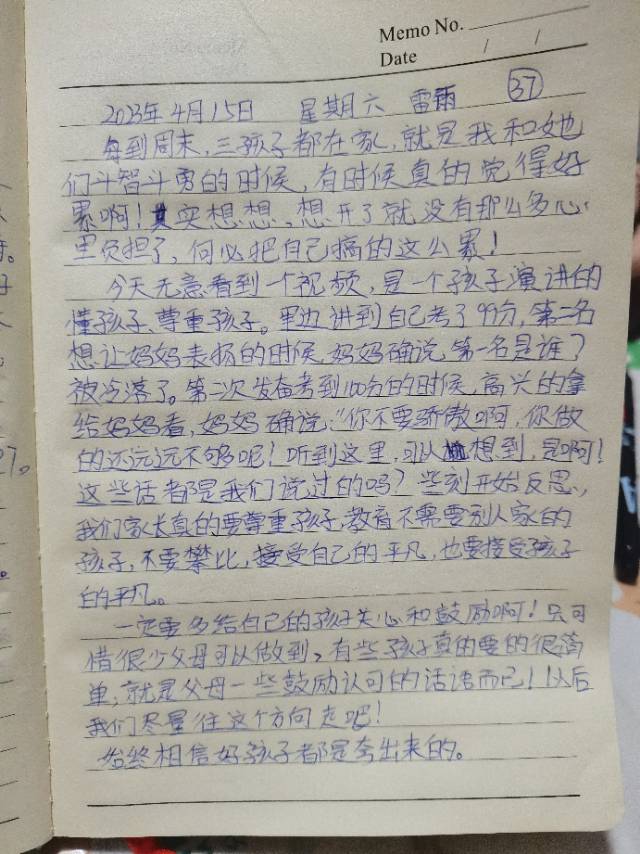 Memo No.
Date / /
2023年4月15日 星期六 雷雨 37
每到周末,三孩子都在家,就是我和她
们斗智斗勇的时候,有时候真的觉得好
累啊!其实想想,想开了就没有那么多心
里负担了,何必把自己搞的这么累!
今天无意看到一个视频,是一个孩子演讲的
懂孩子、尊重孩子。里边讲到自己考了99分,第二名
想让妈妈表扬的时候,妈妈确说第一名是谁?
被冷落了。第二次发奋考到100分的时候,高兴的拿
给妈妈看,妈妈确说:“你不要骄傲啊,你做
的还远远不够呢!听到这里,可以想到,是啊!
这些话都是我们说过的吗?些刻开始反思,
我们家长真的要尊重孩子,教育不需要别人家的
孩子,不要攀比,接受自己的平凡,也要接受孩子
的平凡。
一定要多给自己的孩子关心和鼓励啊!只可
惜很少父母可以做到,有些孩子真的要的很简
单,就是父母一些鼓励认可的话语而已!以后
我们尽量往这个方向走吧!
始终相信好孩子都是夸出来的。